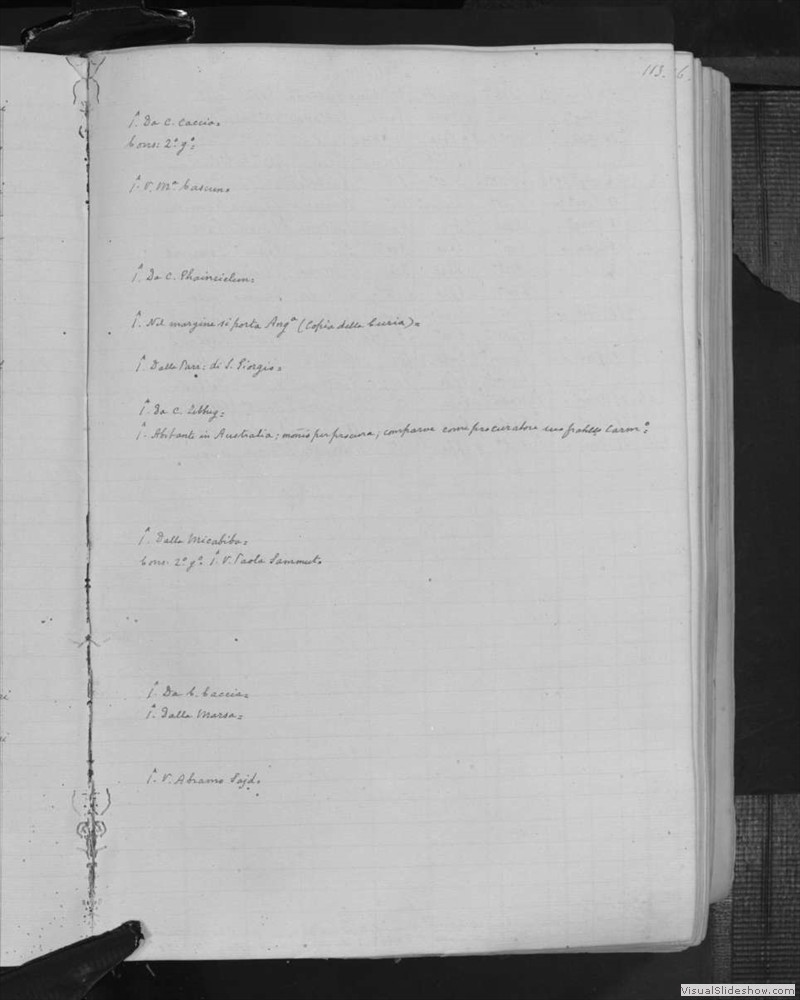 113. 6.
1ª. Da C. Caccia=
Cons: 2º gº=
1ª. V. Mª Cascun=
1ª. Da C.
1ª. Nel margine si porta Angª (Copia della Curia)=
1ª. Dalla Parr: di S. Giorgio=
1ª. Da C. Sebbug=
1ª. Abitante in Australia; per procura; comparve come procuratore suo fratello Carmº=
1ª. Dalla Micabiba=
Cons. 2º gº 1ª. V. Paola Sammut=
1ª. Da C. Caccia=
1ª. Dalla Marsa=
1ª. V. Abramo Sajd=
VisualSlideshow.com